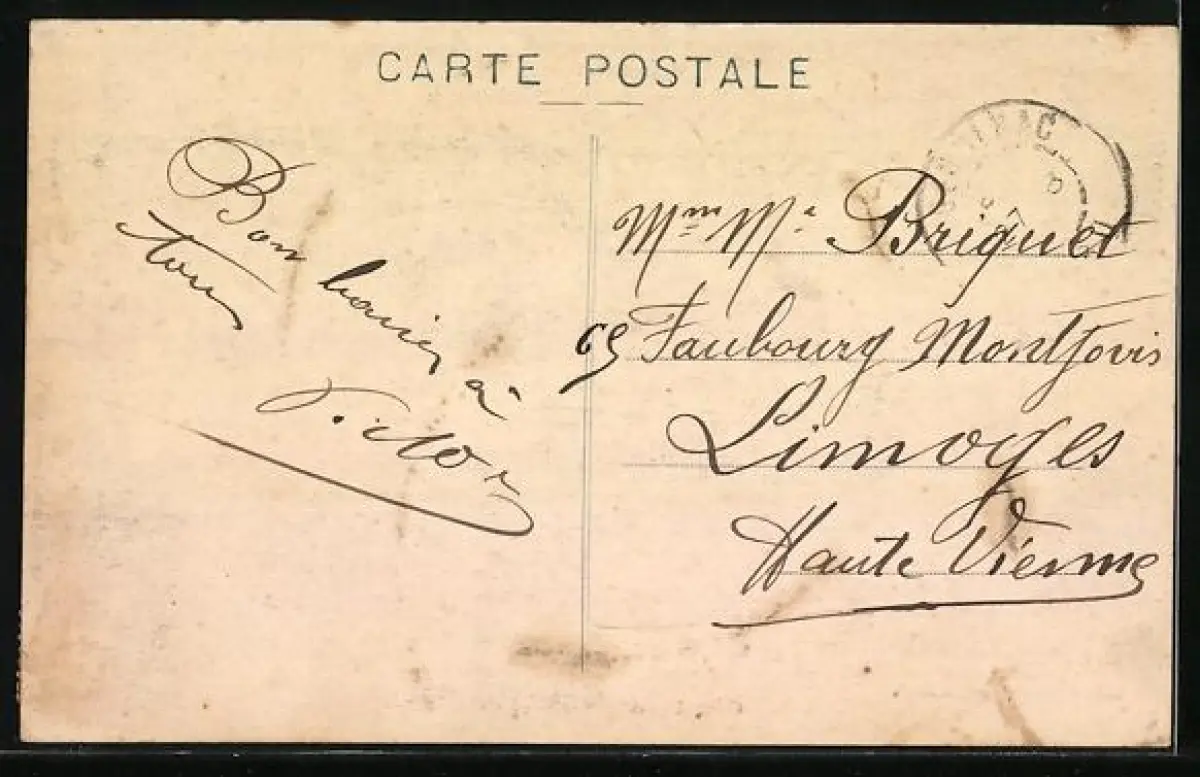 CARTE POSTALE
Bons baisers à
tous
Victor
Mme Me Briquet
69 Faubourg Montjovis
Limoges
Haute Vienne